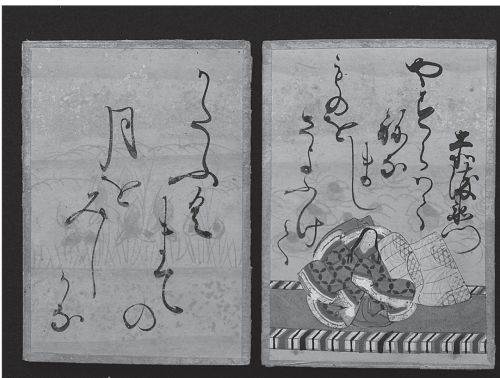 赤染衛門
やすらはて
祢な
まし
ものを
さよふけて
かたふく
まての
月を
みし
かな